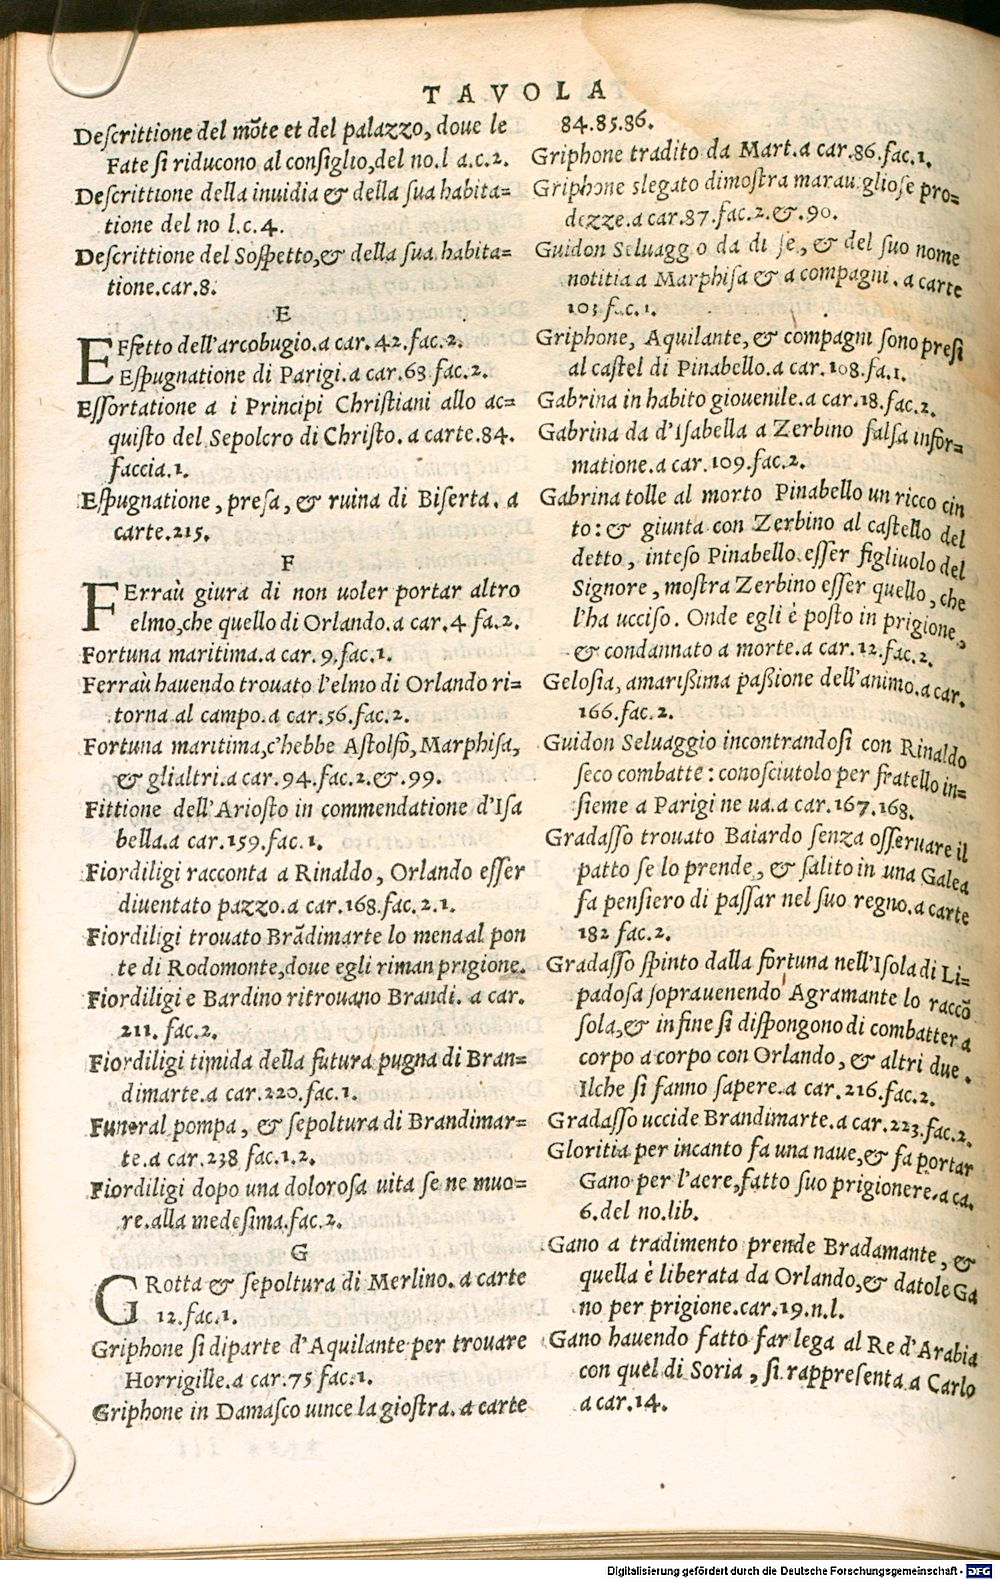 TAVOLA
Deſcrittione del mõte et del palazzo, doue le
Fate ſi riducono al conſiglio, del no.l a.c.2.
Deſcrittione della inuidia & della ſua habita=
tione del no l.c.4.
Deſcrittione del Soſpetto,& della ſua habita=
tione.car.8.
E
EFfetto dell'arcobugio.a car.42.fac.2.
Eſpugnatione di Parigi.a car.63 fac.2.
Eſſortatione a i Principi Chriſtiani allo ac=
quiſto del Sepolcro di Chriſto. a carte.84.
faccia.1.
Eſpugnatione, preſa, & ruina di Biſerta. a
carte.215.
F
FErraù giura di non uoler portar altro
elmo,che quello di Orlando.a car.4 fa.2.
Fortuna maritima.a car.9.fac.1.
Ferraù hauendo trouato l'elmo di Orlando ri=
torna al campo.a car.56.fac.2.
Fortuna maritima,c'hebbe Aſtolfo, Marphiſa,
& glialtri.a car.94.fac.2.&.99.
Fittione dell'Arioſto in commendatione d'Iſa
bella.a car.159.fac.1.
Fiordiligi racconta a Rinaldo, Orlando eſſer
diuentato pazzo.a car.168.fac.2.1.
Fiordiligi trouato Brãdimarte lo mena al pon
te di Rodomonte,doue egli riman prigione.
Fiordiligi e Bardino ritrouano Brandi. a car.
211. fac.2.
Fiordiligi timida della futura pugna di Bran=
dimarte.a car.220.fac.1.
Funeral pompa, & ſepoltura di Brandimar=
te.a car.238 fac.1.2.
Fiordiligi dopo una doloroſa uita ſe ne muo=
re.alla medeſima.fac.2.
G
GRotta & ſepoltura di Merlino. a carte
12.fac.1.
Griphone ſi diparte d'Aquilante per trouare
Horrigille.a car.75 fac.1.
Griphone in Damaſco uince la gioſtra. a carte
84.85.86.
Griphone tradito da Mart.a car.86.fac.1.
Griphone slegato dimoſtra marauiglioſe pro=
dezze.a car.87.fac.2.&.90.
Guidon Seluaggio da di ſe, & del ſuo nome
notitia a Marphiſa & a compagni. a carte
103 fac.1.
Griphone, Aquilante,& compagni ſono preſi
al caſtel di Pinabello.a car.108.fa.1.
Gabrina in habito giouenile.a car.18.fac.2.
Gabrina da d'Iſabella a Zerbino falſa infor=
matione.a car.109.fac.2.
Gabrina tolle al morto Pinabello un ricco cin
to:& giunta con Zerbino al caſtello del
detto, inteſo Pinabello eſſer figliuolo del
Signore, moſtra Zerbino eſſer quello, che
l'ha ucciſo. Onde egli è poſto in prigione,
& condannato a morte.a car.12.fac.2.
Geloſia, amariſſima paſſione dell'animo.a car.
166.fac.2.
Guidon Seluaggio incontrandoſi con Rinaldo
ſeco combatte: conoſciutolo per fratello in=
ſieme a Parigi ne ua.a car.167.168.
Gradaſſo trouato Baiardo ſenza oſſeruare il
patto ſe lo prende, & ſalito in una Galea
fa penſiero di paſſar nel ſuo regno.a carte
182 fac.2.
Gradaſſo ſpinto dalla fortuna nell'Iſola di Li=
padoſa ſoprauenendo Agramante lo raccõ
ſola,& in fine ſi diſpongono di combatter a
corpo a corpo con Orlando, & altri due.
Ilche ſi fanno ſapere.a car.216.fac.2.
Gradaſſo uccide Brandimarte.a car.223.fac.2.
Gloritia per incanto fa una naue,& fa portar
Gano per l'aere,fatto ſuo prigionere.a ca.
6.del no.lib.
Gano a tradimento prende Bradamante, &
quella è liberata da Orlando,& datole Ga
no per prigione.car.19.n.l.
Gano hauendo fatto far lega al Re d'Arabia
con quel di Soria, ſi rappreſenta a Carlo
a car.14.
Digitalisierung gefördert durch die Deutsche Forschungsgemeinschaft - DFG